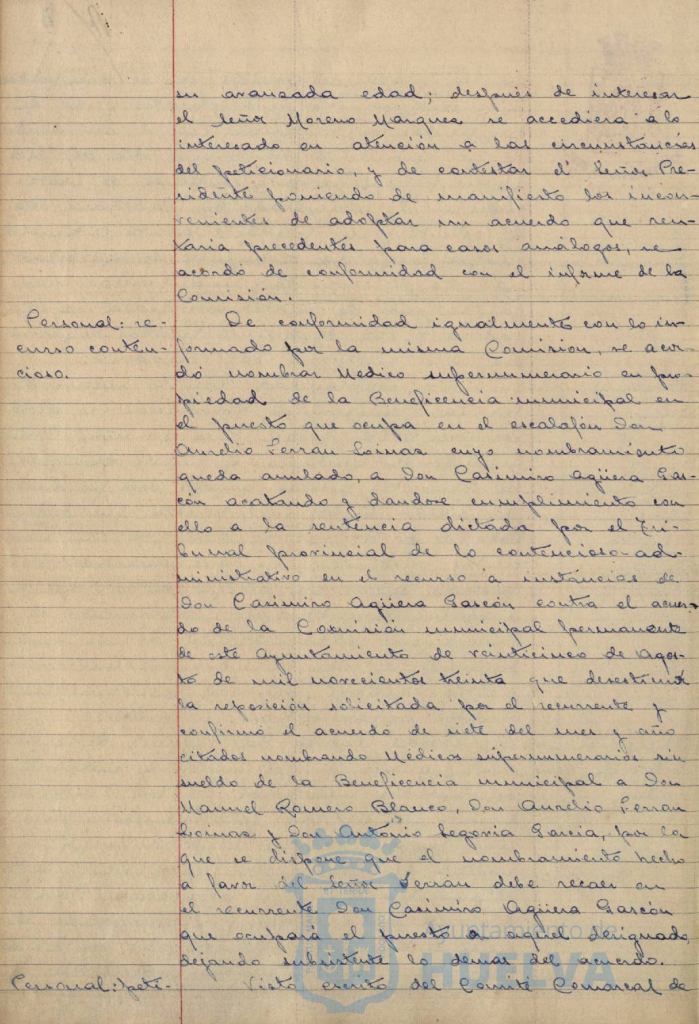 su avanzada edad; después de interesar
el Señor Moreno Marquez se accediera a lo
interesado en atención a las circunstancias
del peticionario, y de contestar el Señor Pre-
sidente poniendo de manifiesto los incon-
venientes de adoptar un acuerdo que sen-
taria precedentes para casos análogos, se
acordó de conformidad con el informe de la
Comisión.
Personal: re-
curso conten-
cioso.
De conformidad igualmente con lo in-
formado por la misma Comision, se acor-
dó nombrar Medico supernumerario en pro-
piedad de la Beneficencia municipal en
el puesto que ocupa en el escalafón Don
Aurelio Ferran Loinaz cuyo nombramiento
queda anulado, a Don Casimiro Agüera Gas-
cón acatando y dandose cumplimiento con
ello a la sentencia dictada por el Tri-
bunal provincial de lo contencioso-ad-
ministrativo en el recurso a instancias de
Don Casimiro Agüera Gascón contra el acuer-
do de la Comisión municipal permanente
de este Ayuntamiento de veinticinco de Agos-
to de mil novecientos treinta que desestimó
la reposición solicitada por el recurrente y
confirmó el acuerdo de siete del mes y año
citados nombrando Médicos supernumerarios sin
sueldo de la Beneficencia municipal a Don
Manuel Romero Blanco, Don Aurelio Ferran
Loinaz y Don Antonio Segovia Garcia, por la
que se dispone que el nombramiento hecho
a favor del Señor Ferrán debe recaer en
el recurrente Don Casimiro Agüera Gascón
que ocupará el puesto a aquel designado,
dejando subsistente lo demas del acuerdo.
Personal: peti-
Visto escrito del Comité Comarcal de
Ayuntamiento de
HUELVA